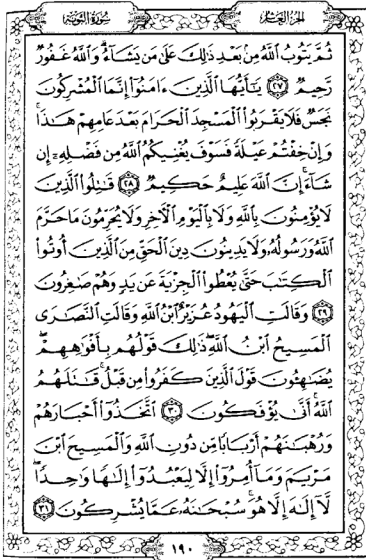 الجزء العاشر
سورة التوبة
ثُمَّ يَتُوبُ ٱللَّهُ مِنۢ بَعْدِ ذَٰلِكَ عَلَىٰ مَن يَشَآءُ وَٱللَّهُ غَفُورٌ
رَّحِيمٌ ٢٧ يَٰٓأَيُّهَا ٱلَّذِينَ ءَامَنُوٓا۟ إِنَّمَا ٱلْمُشْرِكُونَ
نَجَسٌ فَلَا يَقْرَبُوا۟ ٱلْمَسْجِدَ ٱلْحَرَامَ بَعْدَ عَامِهِمْ هَٰذَا
وَإِنْ خِفْتُمْ عَيْلَةً فَسَوْفَ يُغْنِيكُمُ ٱللَّهُ مِن فَضْلِهِۦٓ إِن
شَآءَ إِنَّ ٱللَّهَ عَلِيمٌ حَكِيمٌ ٢٨ قَٰتِلُوا۟ ٱلَّذِينَ
لَا يُؤْمِنُونَ بِٱللَّهِ وَلَا بِٱلْيَوْمِ ٱلْءَاخِرِ وَلَا يُحَرِّمُونَ مَا حَرَّمَ
ٱللَّهُ وَرَسُولُهُۥ وَلَا يَدِينُونَ دِينَ ٱلْحَقِّ مِنَ ٱلَّذِينَ أُوتُوا۟
ٱلْكِتَٰبَ حَتَّىٰ يُعْطُوا۟ ٱلْجِزْيَةَ عَن يَدٍ وَهُمْ صَٰغِرُونَ
٢٩ وَقَالَتِ ٱلْيَهُودُ عُزَيْرٌ ٱبْنُ ٱللَّهِ وَقَالَتِ ٱلنَّصَٰرَى
ٱلْمَسِيحُ ٱبْنُ ٱللَّهِ ذَٰلِكَ قَوْلُهُم بِأَفْوَٰهِهِمْ
يُضَٰهِـُٔونَ قَوْلَ ٱلَّذِينَ كَفَرُوا۟ مِن قَبْلُ قَٰتَلَهُمُ
ٱللَّهُ أَنَّىٰ يُؤْفَكُونَ ٣٠ ٱتَّخَذُوٓا۟ أَحْبَارَهُمْ
وَرُهْبَٰنَهُمْ أَرْبَابًا مِّن دُونِ ٱللَّهِ وَٱلْمَسِيحَ ٱبْنَ
مَرْيَمَ وَمَآ أُمِرُوٓا۟ إِلَّا لِيَعْبُدُوٓا۟ إِلَٰهًا وَٰحِدًا
لَّآ إِلَٰهَ إِلَّا هُوَ سُبْحَٰنَهُۥ عَمَّا يُشْرِكُونَ ٣١
١٩٠